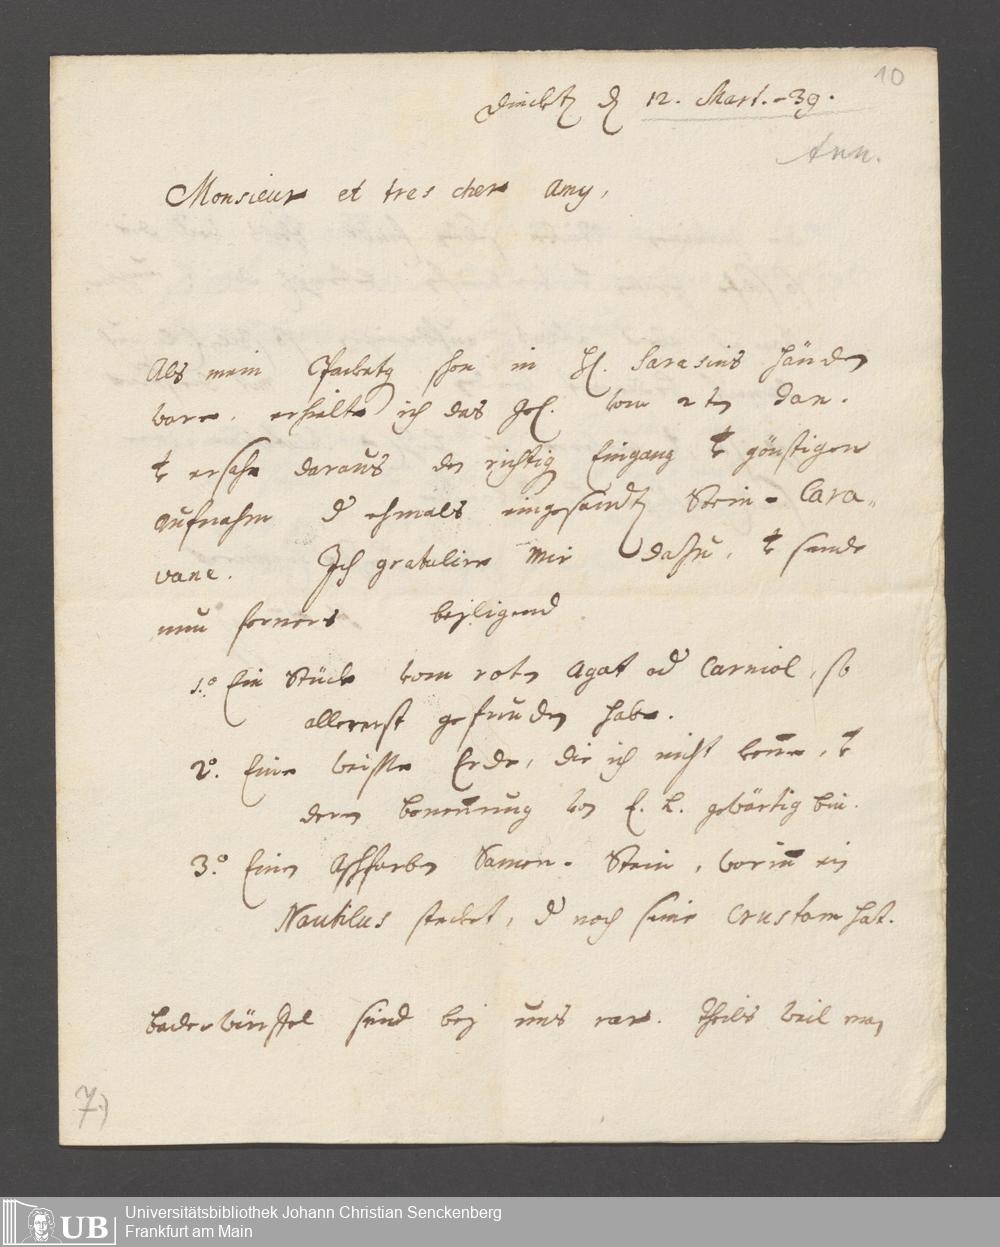 10
d 12. Mart. -39.
Ann.
Monsieur et tres cher Amy,
Als mein Packetg schon in H. Sarasins Händen
ware, erhielte ich das Gel. vom 2ten Jan.
& ersahe daraus den richtig Eingang & gönstigen
Aufnahm d ehmals eingesandten Stein-Cara-
vane. Ich gratulire mir dafür, & sende
nun ferners beyligend
1.o Ein Stück vom roten Agat od Carniol, so
allererst gefunden habe.
2o. Eine weisse Erde, die ich nicht kenne, &
deren Benennung von E. H. gewärtig bin.
3.o Einen Aschfarben Samen-Stein, worinn ein
Nautilus stecket, d noch seine crustam hat.
Baderwürffel sind bey uns rar. theils weil man
7.)
UB Universitätsbibliothek Johann Christian Senckenberg
Frankfurt am Main